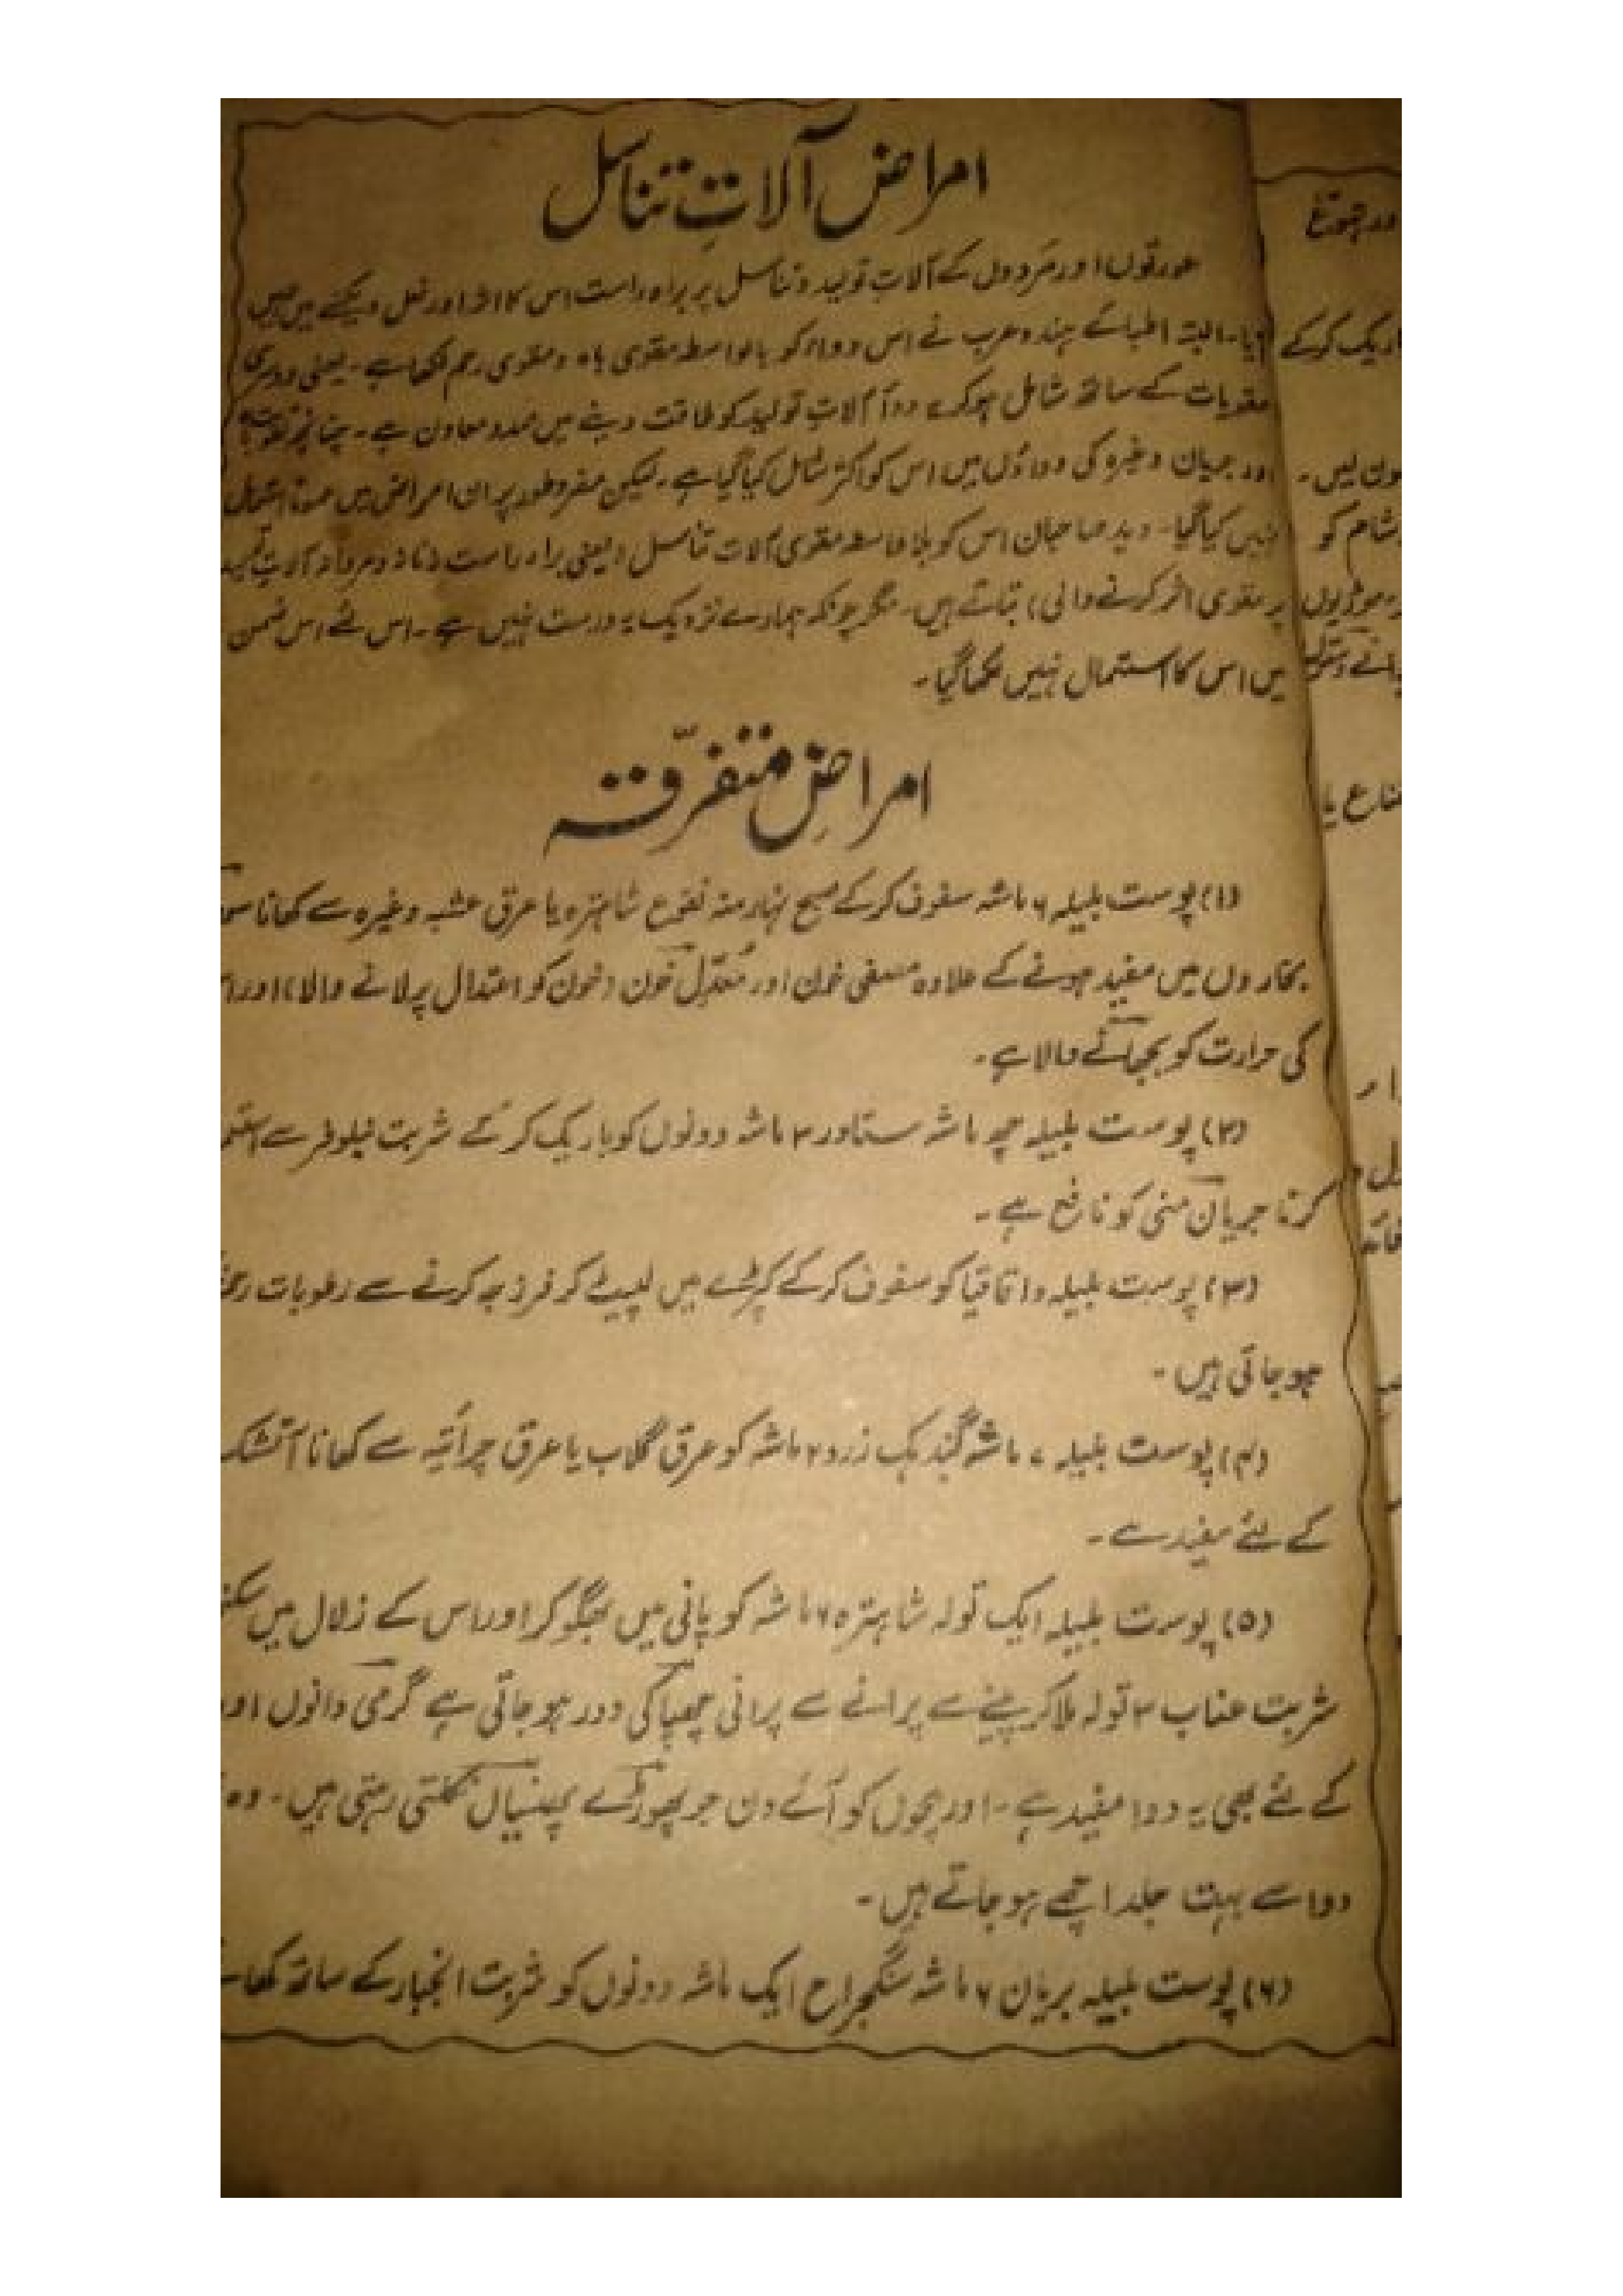 امراض آلاتِ تناسل
عورتوں اور مَردوں کے آلاتِ تولید و تناسل پر براہ راست اس کا اثر اور فعل دیکھنے میں نہیں
آیا۔ البتہ اطبائے ہند و عرب نے اس دواء کو بالواسطہ مقوی باہ و مقوی رحم لکھا ہے۔ یعنی دوسری
مقویات کے ساتھ شامل ہوکر یہ دوا آلاتِ تولید کو طاقت دینے میں ممد و معاون ہے۔ چنانچہ
اور جریان وغیرہ کی دواؤں میں اس کو اکثر شامل کیا گیا ہے۔ لیکن مفرد طور پر ان امراض میں عموماً استعمال
نہیں کیا گیا۔ وید صاحبان اس کو بلا واسطہ مقوی آلات تناسل (یعنی براہ راست زنانہ و مردانہ آلاتِ
پر مقوی اثر کرنے والی) بتاتے ہیں۔ مگر چونکہ ہمارے نزدیک یہ درست نہیں ہے۔ اس لئے اس ضمن
میں اس کا استعمال نہیں لکھا گیا۔
امراضِ متفرّقہ
(۱) پوست بلیلہ ۶ ماشہ سفوف کرکے صبح نہار منہ نقوع شاہترہ یا عرق عشبہ وغیرہ سے کھانا
بخاروں میں مفید ہونے کے علاوہ مصفی خون اور مُعَدِّل خون (خون کو اعتدال پر لانے والا) اور
کی حرارت کو بجھانے والا ہے۔
(۲) پوست بلیلہ چھ ماشہ ستاور ۳ ماشہ دونوں کو باریک کرکے شربت نیلوفر سے
کرنا جریان منی کو نافع ہے۔
(۳) پوست بلیلہ و اقاقیا کو سفوف کرکے کپڑے میں لپیٹ کر فرزجہ کرنے سے رطوبات
ہوجاتی ہیں۔
(۴) پوست بلیلہ ۷ ماشہ گندہک زرد ۲ ماشہ کو عرق گلاب یا عرق چرائتہ سے کھانا آتشک
کے لئے مفید ہے۔
(۵) پوست بلیلہ ایک تولہ شاہترہ ۶ ماشہ کو پانی میں بھگوکر اور اس کے زلال میں
شربت عناب ۳ تولہ ملاکر پینے سے پرانے سے پرانی چھپاکی دور ہوجاتی ہے گرمی دانوں
کے لئے بھی یہ دوا مفید ہے۔ اور بچوں کو آئے دن جو پھوڑے پھنسیاں نکلتی رہتی ہیں۔ وہ
دوا سے بہت جلد اچھے ہوجاتے ہیں۔
(۶) پوست بلیلہ بریان ۶ ماشہ سنگجراح ایک ماشہ دونوں کو شربت انجبار کے ساتھ